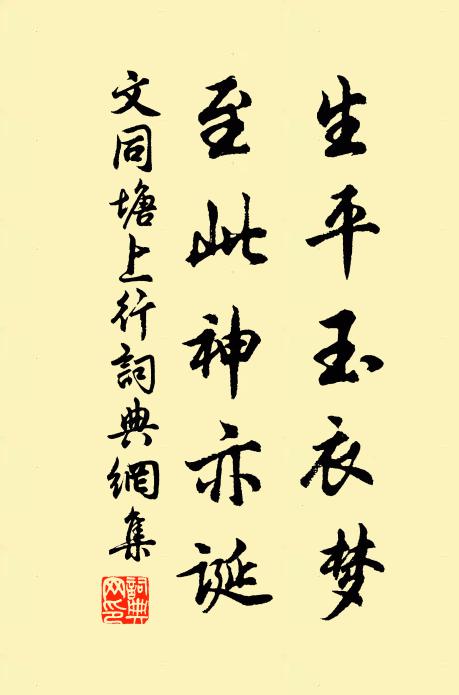 生平玉衣梦
至此神亦诞
文同塘上行詞典網集
詞典网印